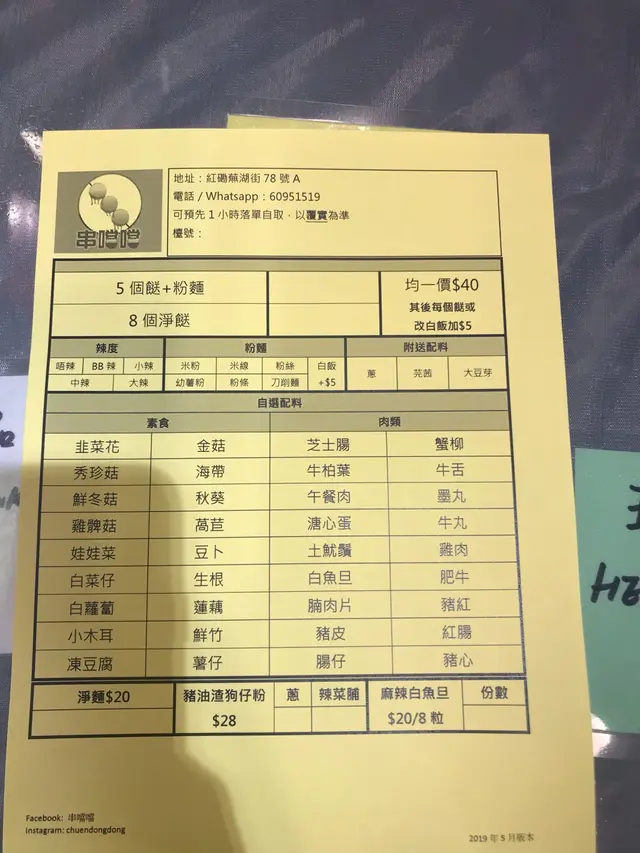 串噹噹
地址：紅磡蕪湖街 78 號 A
電話 / Whatsapp：60951519
可預先 1 小時落單自取，以覆實為準
檯號：
5 個餸+粉麵
8 個淨餸
均一價$40
其後每個餸或
改白飯加$5
辣度 粉麵 附送配料
唔辣 BB 辣 小辣 米粉 米線 粉絲 白飯 蔥 芫茜 大豆芽
中辣 大辣 幼薯粉 粉條 刀削麵 +$5
自選配料
素食 肉類
韭菜花 金菇 芝士腸 蟹柳
秀珍菇 海帶 牛柏葉 牛舌
鮮冬菇 秋葵 午餐肉 墨丸
雞髀菇 萵苣 溏心蛋 牛丸
娃娃菜 豆卜 土魷鬚 雞肉
白菜仔 生根 白魚旦 肥牛
白蘿蔔 蓮藕 腩肉片 豬紅
小木耳 鮮竹 豬皮 紅腸
凍豆腐 薯仔 腸仔 豬心
淨麵$20 豬油渣狗仔粉 蔥 辣菜脯 麻辣白魚旦 份數
$28 $20/8 粒
Facebook: 串噹噹
Instagram: chuendongdong
2019 年 5 月版本